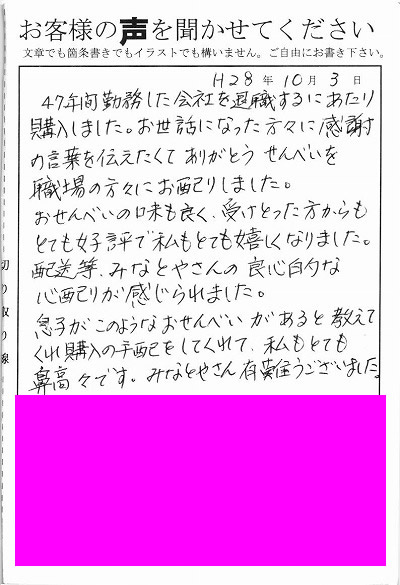 お客様の声を聞かせてください
文章でも箇条書きでもイラストでも構いません。ご自由にお書き下さい。
H28年10月3日
47年間勤務した会社を退職するにあたり
購入しました。お世話になった方々に感謝
の言葉を伝えたくてありがとうせんべいを
職場の方々にお配りしました。
おせんべいの味も良く、受けとった方からも
とても好評で私もとても嬉しくなりました。
配送等、みなとやさんの良心的な
心配りが感じられました。
息子がこのようなおせんべいがあると教えて
くれ購入の手配をしてくれて、私もとても
鼻高々です。みなとやさん有難うございました。
切り取り線